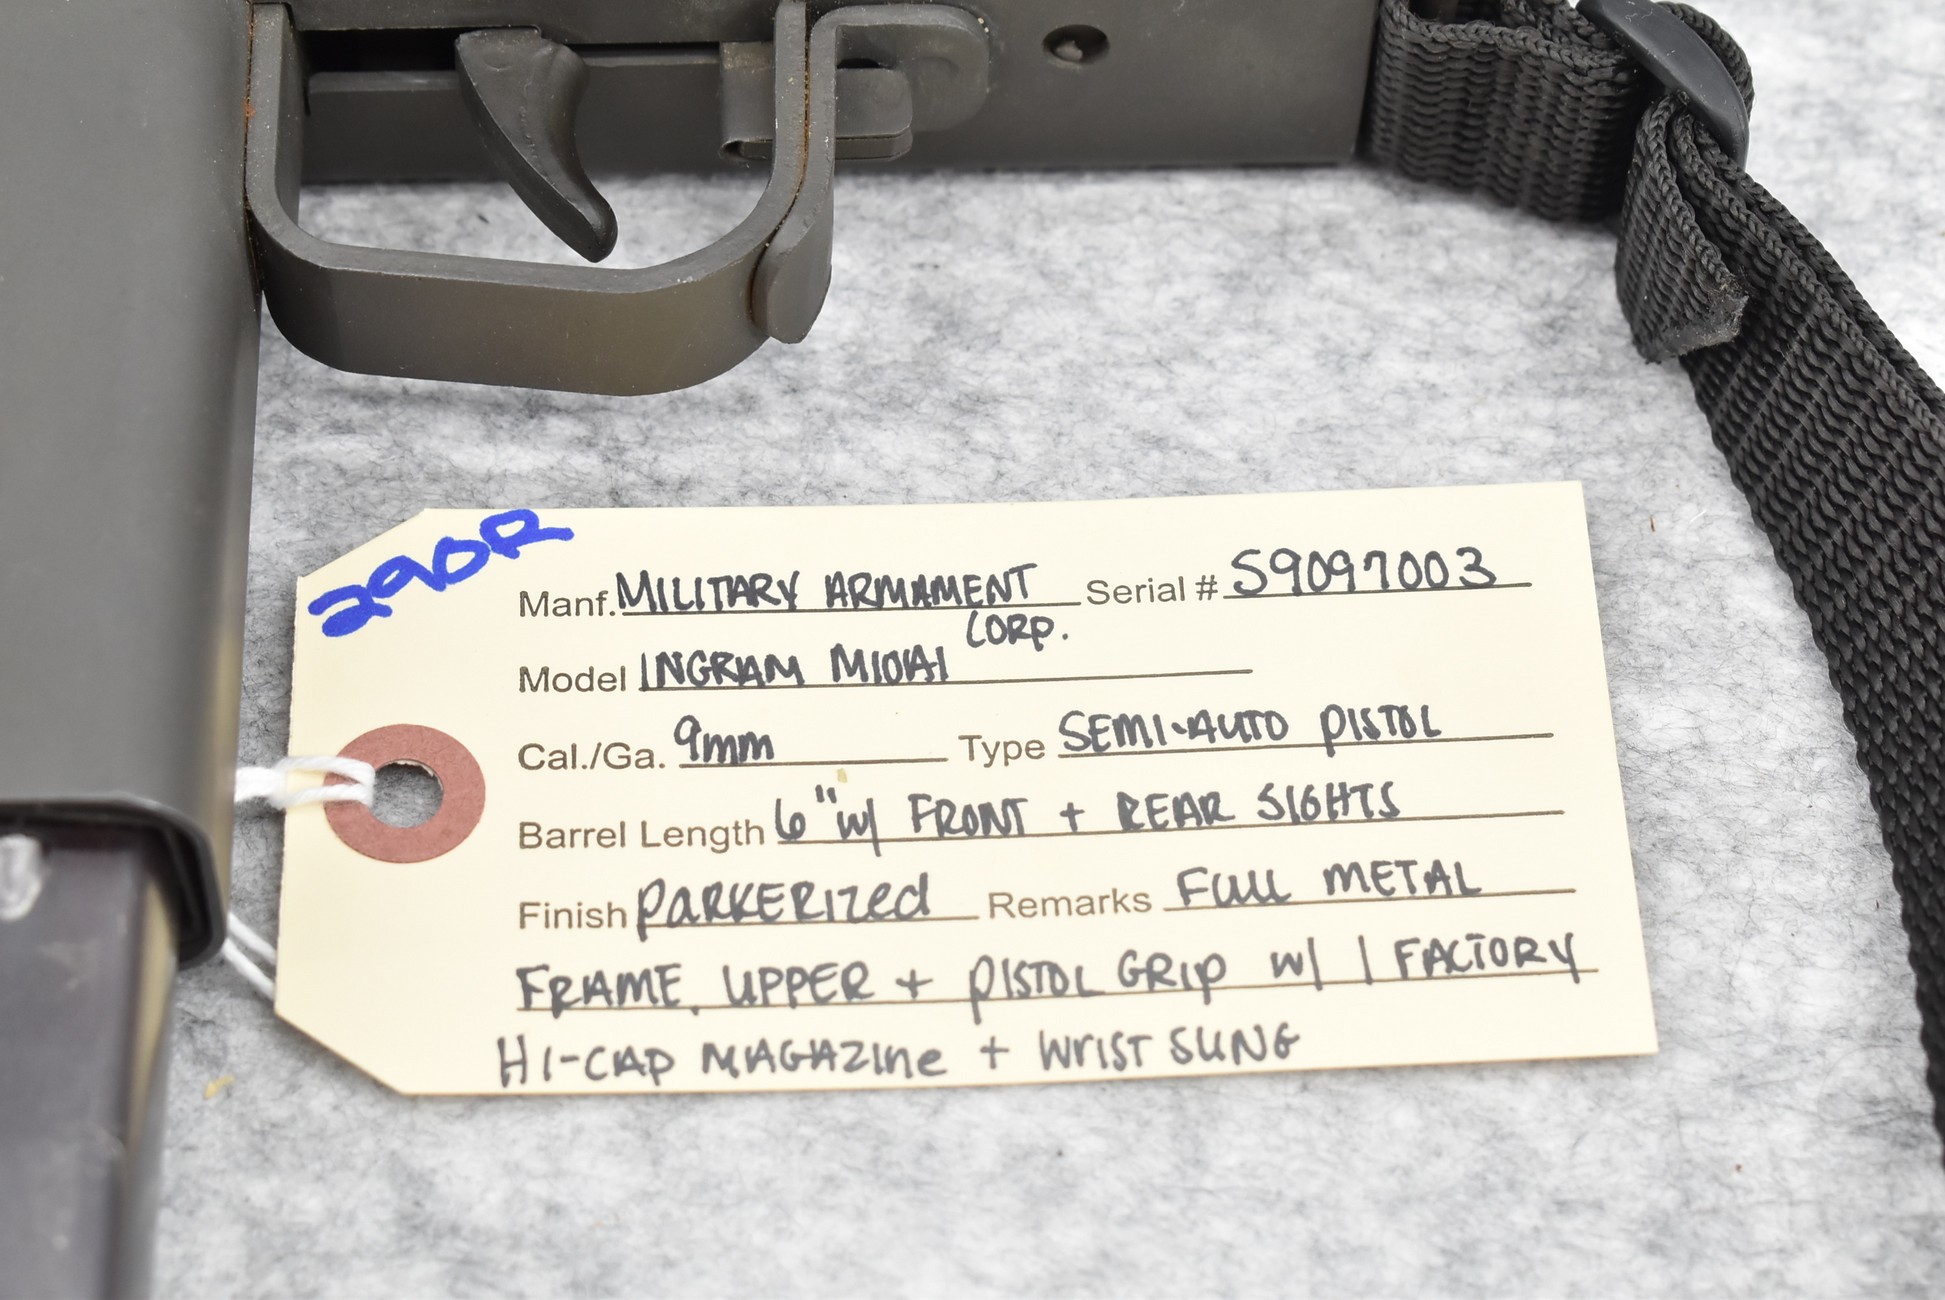 290R
Manf. MILITARY ARMAMENT Serial # S9097003
CORP.
Model INGRAM M10A1
Cal./Ga. 9mm Type SEMI-AUTO PISTOL
Barrel Length 6" w/ FRONT + REAR SIGHTS
Finish PARKERIZED Remarks FULL METAL
FRAME, UPPER + PISTOL GRIP w/ 1 FACTORY
HI-CAP MAGAZINE + WRIST SLING